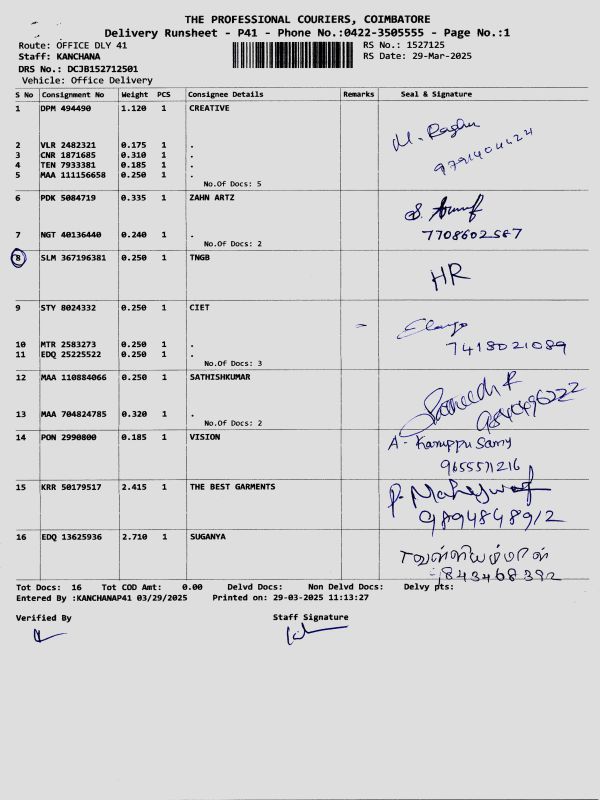 THE PROFESSIONAL COURIERS, COIMBATORE
Delivery Runsheet - P41 - Phone No.:0422-3505555 - Page No.:1
Route: OFFICE DLY 41 RS No.: 1527125
Staff: KANCHANA RS Date: 29-Mar-2025
DRS No.: DCJB152712501
Vehicle: Office Delivery
S No Consignment No Weight PCS Consignee Details Remarks Seal & Signature
1 DPM 494490 1.120 1 CREATIVE
M. Raghu
2 VLR 2482321 0.175 1 .
3 CNR 1871685 0.310 1 .
4 TEN 7933381 0.185 1 .
5 MAA 111156658 0.250 1 .
No.Of Docs: 5
6 PDK 5084719 0.335 1 ZAHN ARTZ
7 NGT 40136440 0.240 1 . 7708602587
No.Of Docs: 2
8 SLM 367196381 0.250 1 TNGB
HR
9 STY 8024332 0.250 1 CIET
10 MTR 2583273 0.250 1 . 7418021089
11 EDQ 25225522 0.250 1 .
No.Of Docs: 3
12 MAA 110884066 0.250 1 SATHISHKUMAR
13 MAA 704824785 0.320 1 .
No.Of Docs: 2
14 PON 2990800 0.185 1 VISION A. Karuppu Samy
9655571216
15 KRR 50179517 2.415 1 THE BEST GARMENTS
9894848912
16 EDQ 13625936 2.710 1 SUGANYA
Tot Docs: 16 Tot COD Amt: 0.00 Delvd Docs: Non Delvd Docs: Delvy pts:
Entered By :KANCHANAP41 03/29/2025 Printed on: 29-03-2025 11:13:27
Verified By Staff Signature